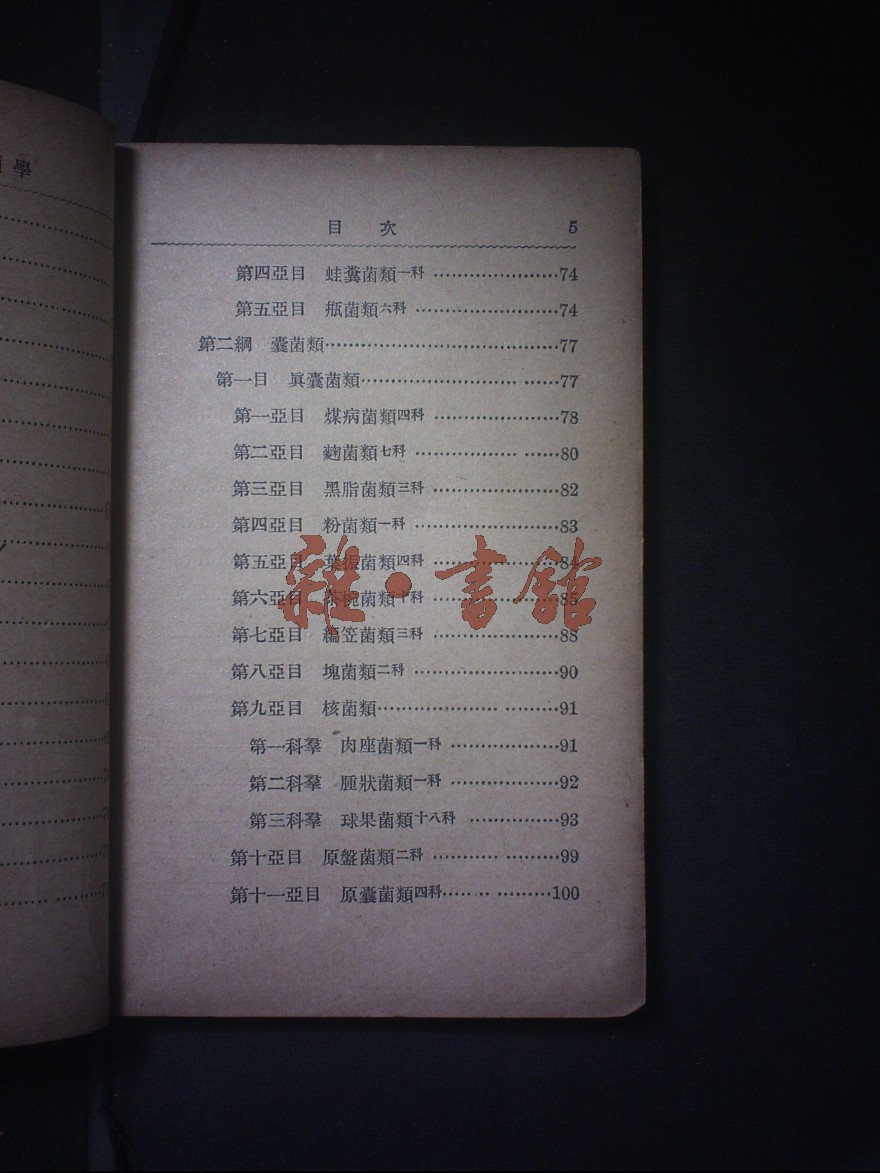 學
目 次 5
第四亞目 蛙糞菌類一科 ······················74
第五亞目 瓶菌類六科 ·························74
第二綱 囊菌類·········································77
第一目 眞囊菌類··························· ······77
第一亞目 煤病菌類四科 ······················78
第二亞目 麴菌類七科 ·················· ······80
第三亞目 黑脂菌類三科 ······················82
第四亞目 粉菌類一科 ·························83
第五亞目 葉振菌類四科 ······················84
第六亞目 茶椀菌類十科 ······················85
第七亞目 編笠菌類三科 ······················88
第八亞目 塊菌類二科 ·························90
第九亞目 核菌類····················· ·········91
第一科羣 肉座菌類一科 ···················91
第二科羣 腫狀菌類一科 ···················92
第三科羣 球果菌類十八科 ················93
第十亞目 原盤菌類二科 ··········· ·········99
第十一亞目 原囊菌類四科········ ·········100
雜·書館